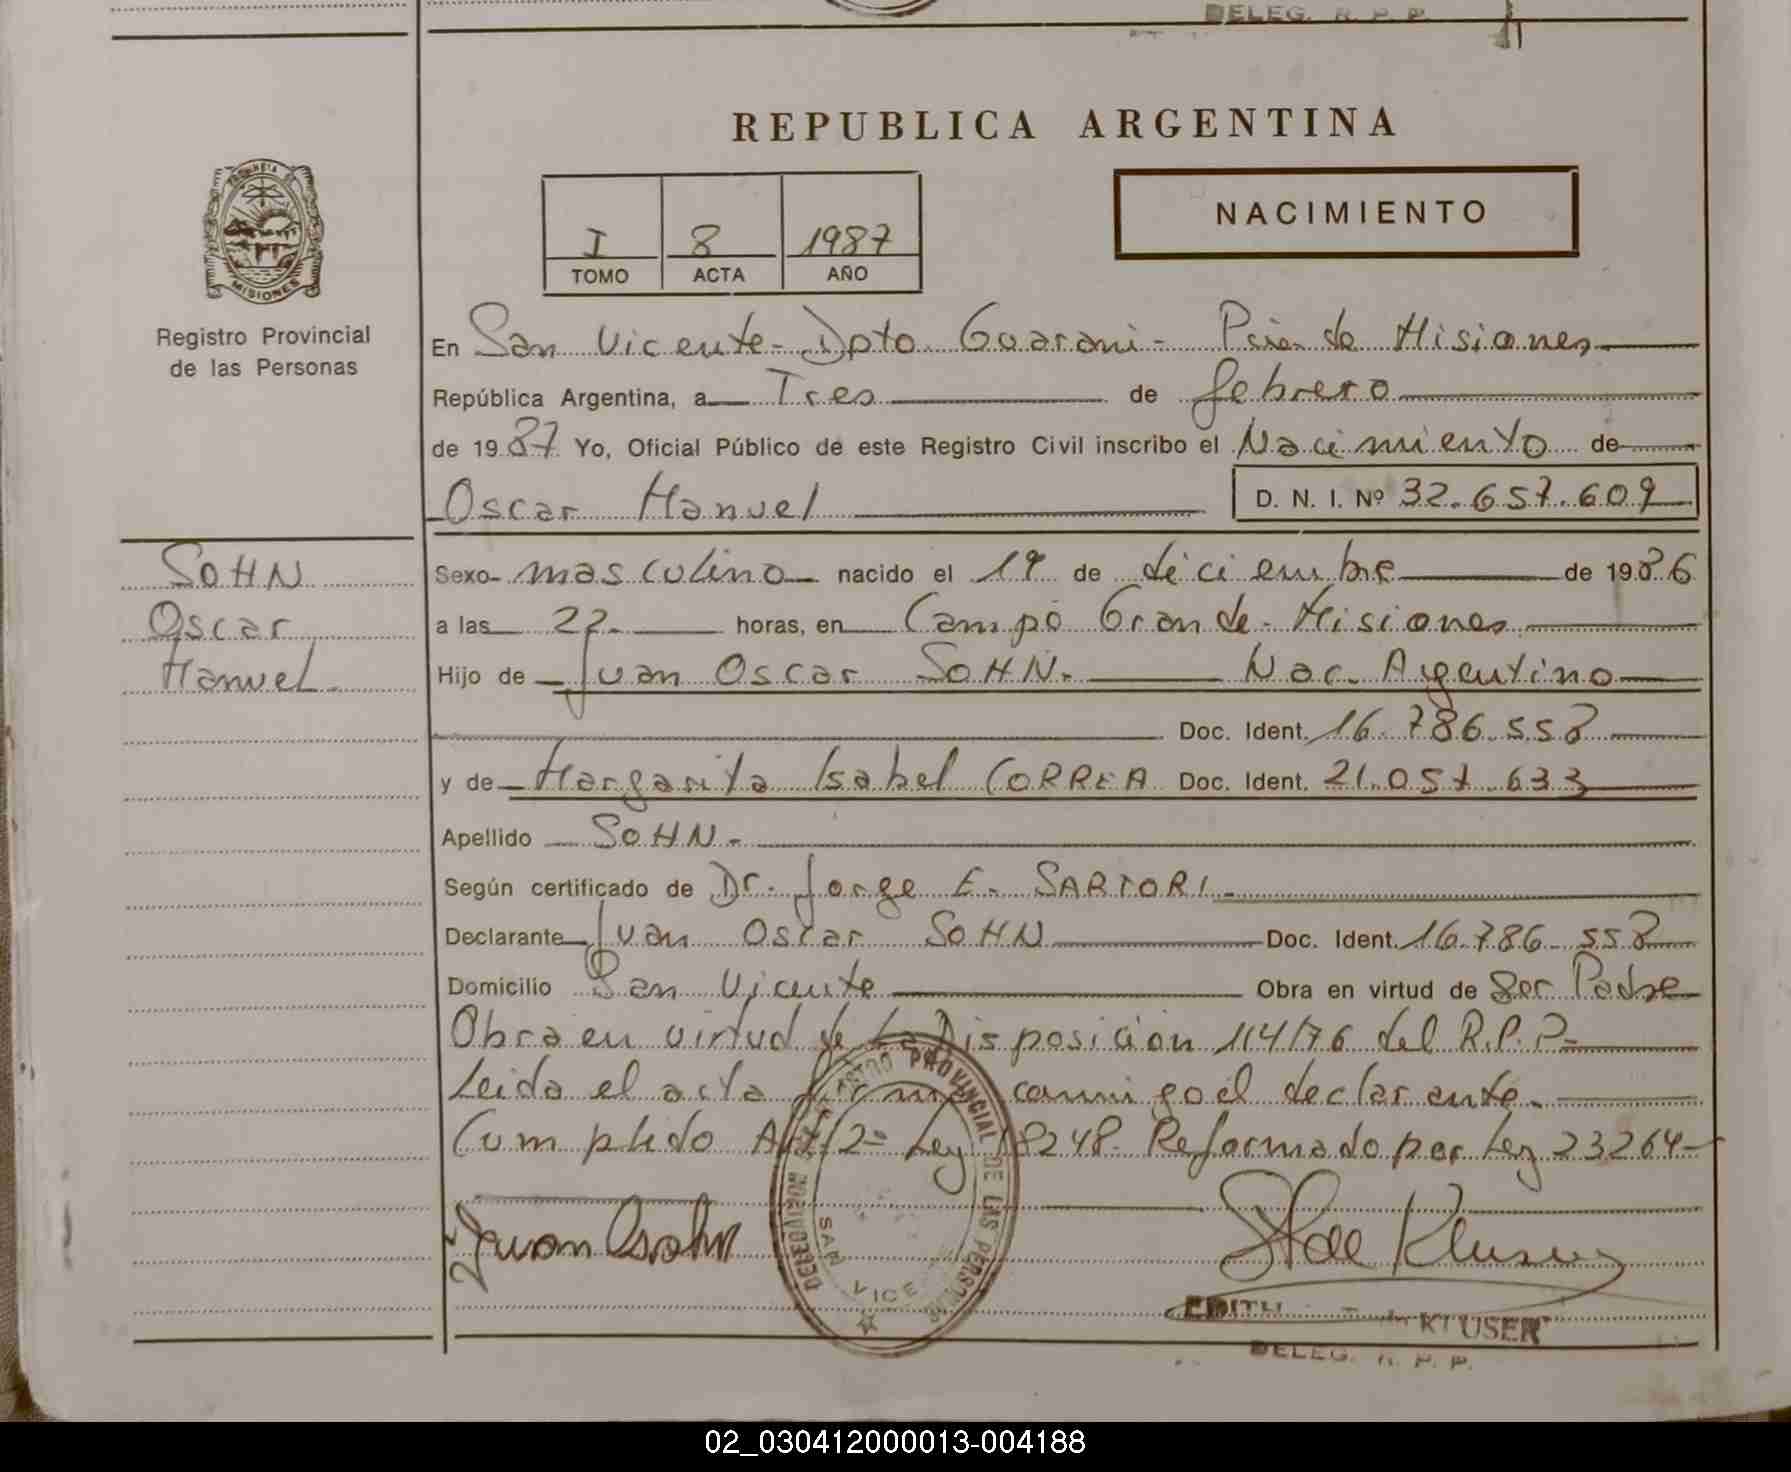 DELEG. R. P. P.
REPUBLICA ARGENTINA
NACIMIENTO
I 8 1987
TOMO ACTA AÑO
PROVINCIA DE
MISIONES
Registro Provincial
de las Personas
En San Vicente - Dpto Guarani - Pcia de Misiones
República Argentina, a Tres de febrero
de 1987 Yo, Oficial Público de este Registro Civil inscribo el Nacimiento de
Oscar Manuel D. N. I. Nº 32.657.609
SOHN
Oscar
Manuel.
Sexo masculino nacido el 19 de diciembre de 1986
a las 22. horas, en Campo Grande - Misiones
Hijo de Juan Oscar SOHN. Nac. Argentino
Doc. Ident. 16.786.558
y de Margarita Isabel CORREA Doc. Ident. 21.057.633
Apellido SOHN.
Según certificado de Dr. Jorge E. SARTORI.
Declarante Juan Oscar SOHN Doc. Ident. 16.786.558
Domicilio San Vicente Obra en virtud de Ser Padre
Obra en virtud de La Disposición 114/76 del R.P.P.
Leida el acta firma conmigo el declarante.
Cumplido Art. 2º Ley 18248. Reformado por Ley 23264
Juan O Sohn
S H de Kluser
REGISTRO PROVINCIAL DE LAS PERSONAS
SAN VICENTE
EDITH KLUSER
DELEG. R. P. P.
02_030412000013-004188